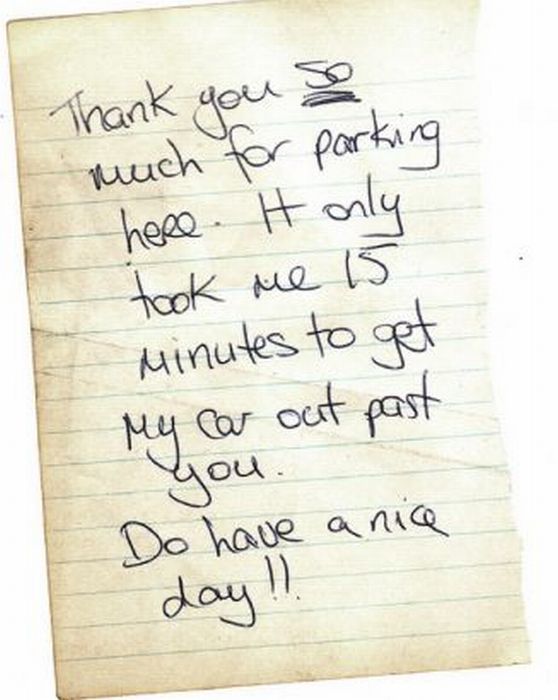 Thank you so
much for parking
here. It only
took me 15
minutes to get
my car out past
you.
Do have a nice
day!!